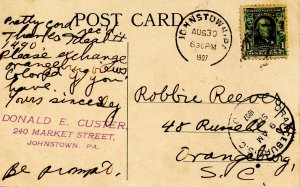 POST CARD.
JOHNSTOWN, PA.
AUG 30
630 PM
1907
Pretty card
Thanks
490.
Please exchange
colored views if you
have.
Yours sincerely
DONALD E. CUSTER,
240 MARKET STREET,
JOHNSTOWN, PA.
Be prompt.
Robbie Reeves
48 Russell
Orangeburg,
S.C.